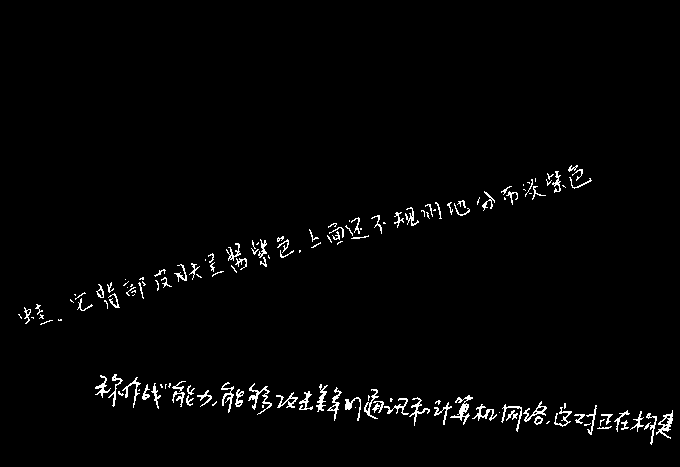 蛙.它背部皮肤呈酱紫色,上面还不规则地分布淡紫色
称作战”能力,能够攻击美军的通讯和计算机网络,这对正在构建